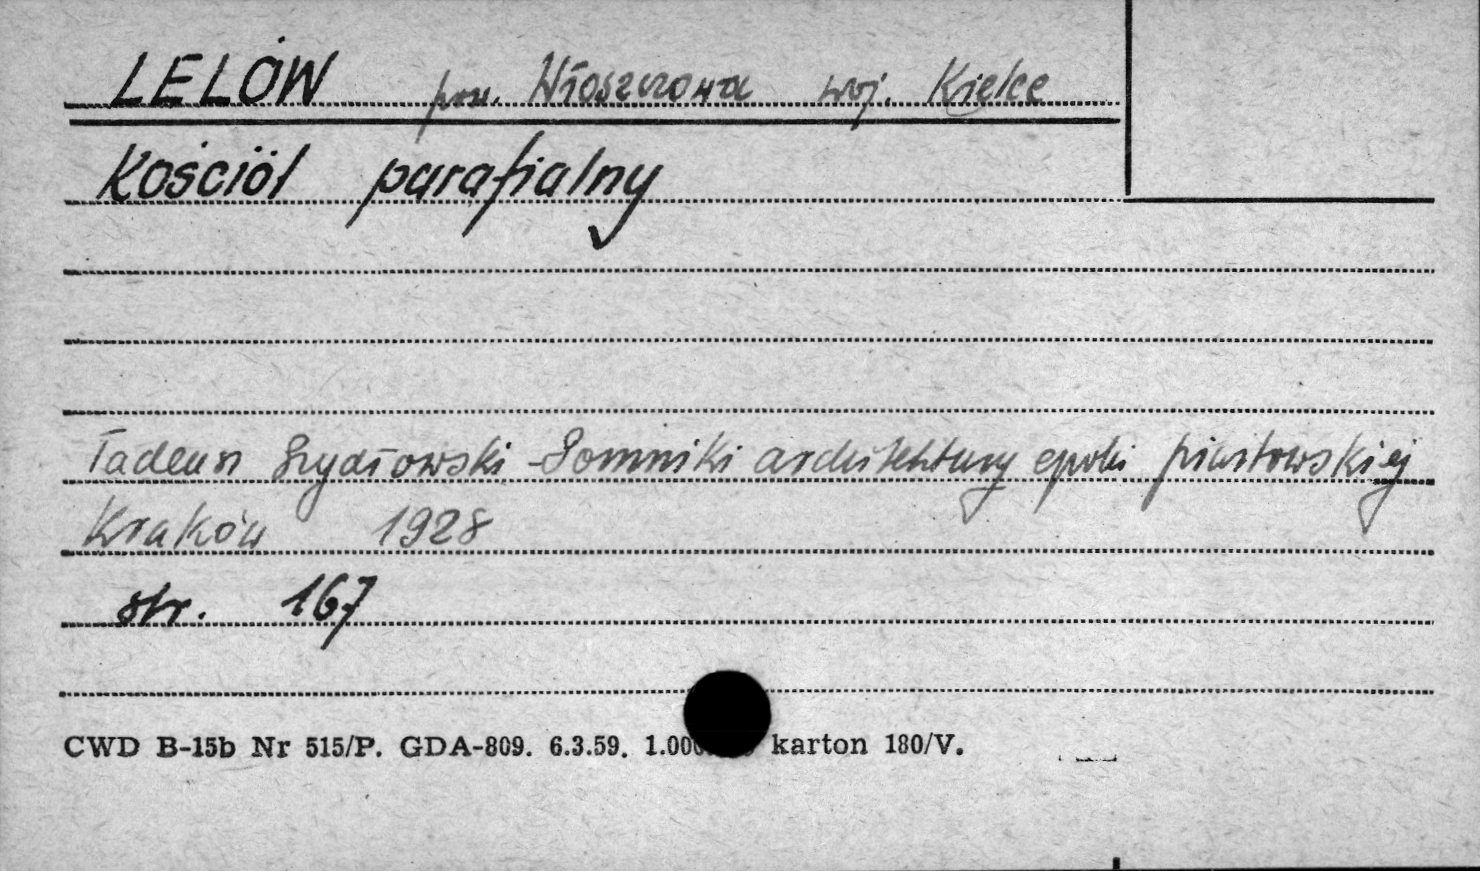 LELÓW pow. Włoszczowa woj. Kielce
Kościół parafialny
Tadeusz Szydłowski - Pomniki architektury epoki piastowskiej
Kraków 1928
str. 167
CWD B-15b Nr 515/P. GDA-809. 6.3.59. karton 180/V.